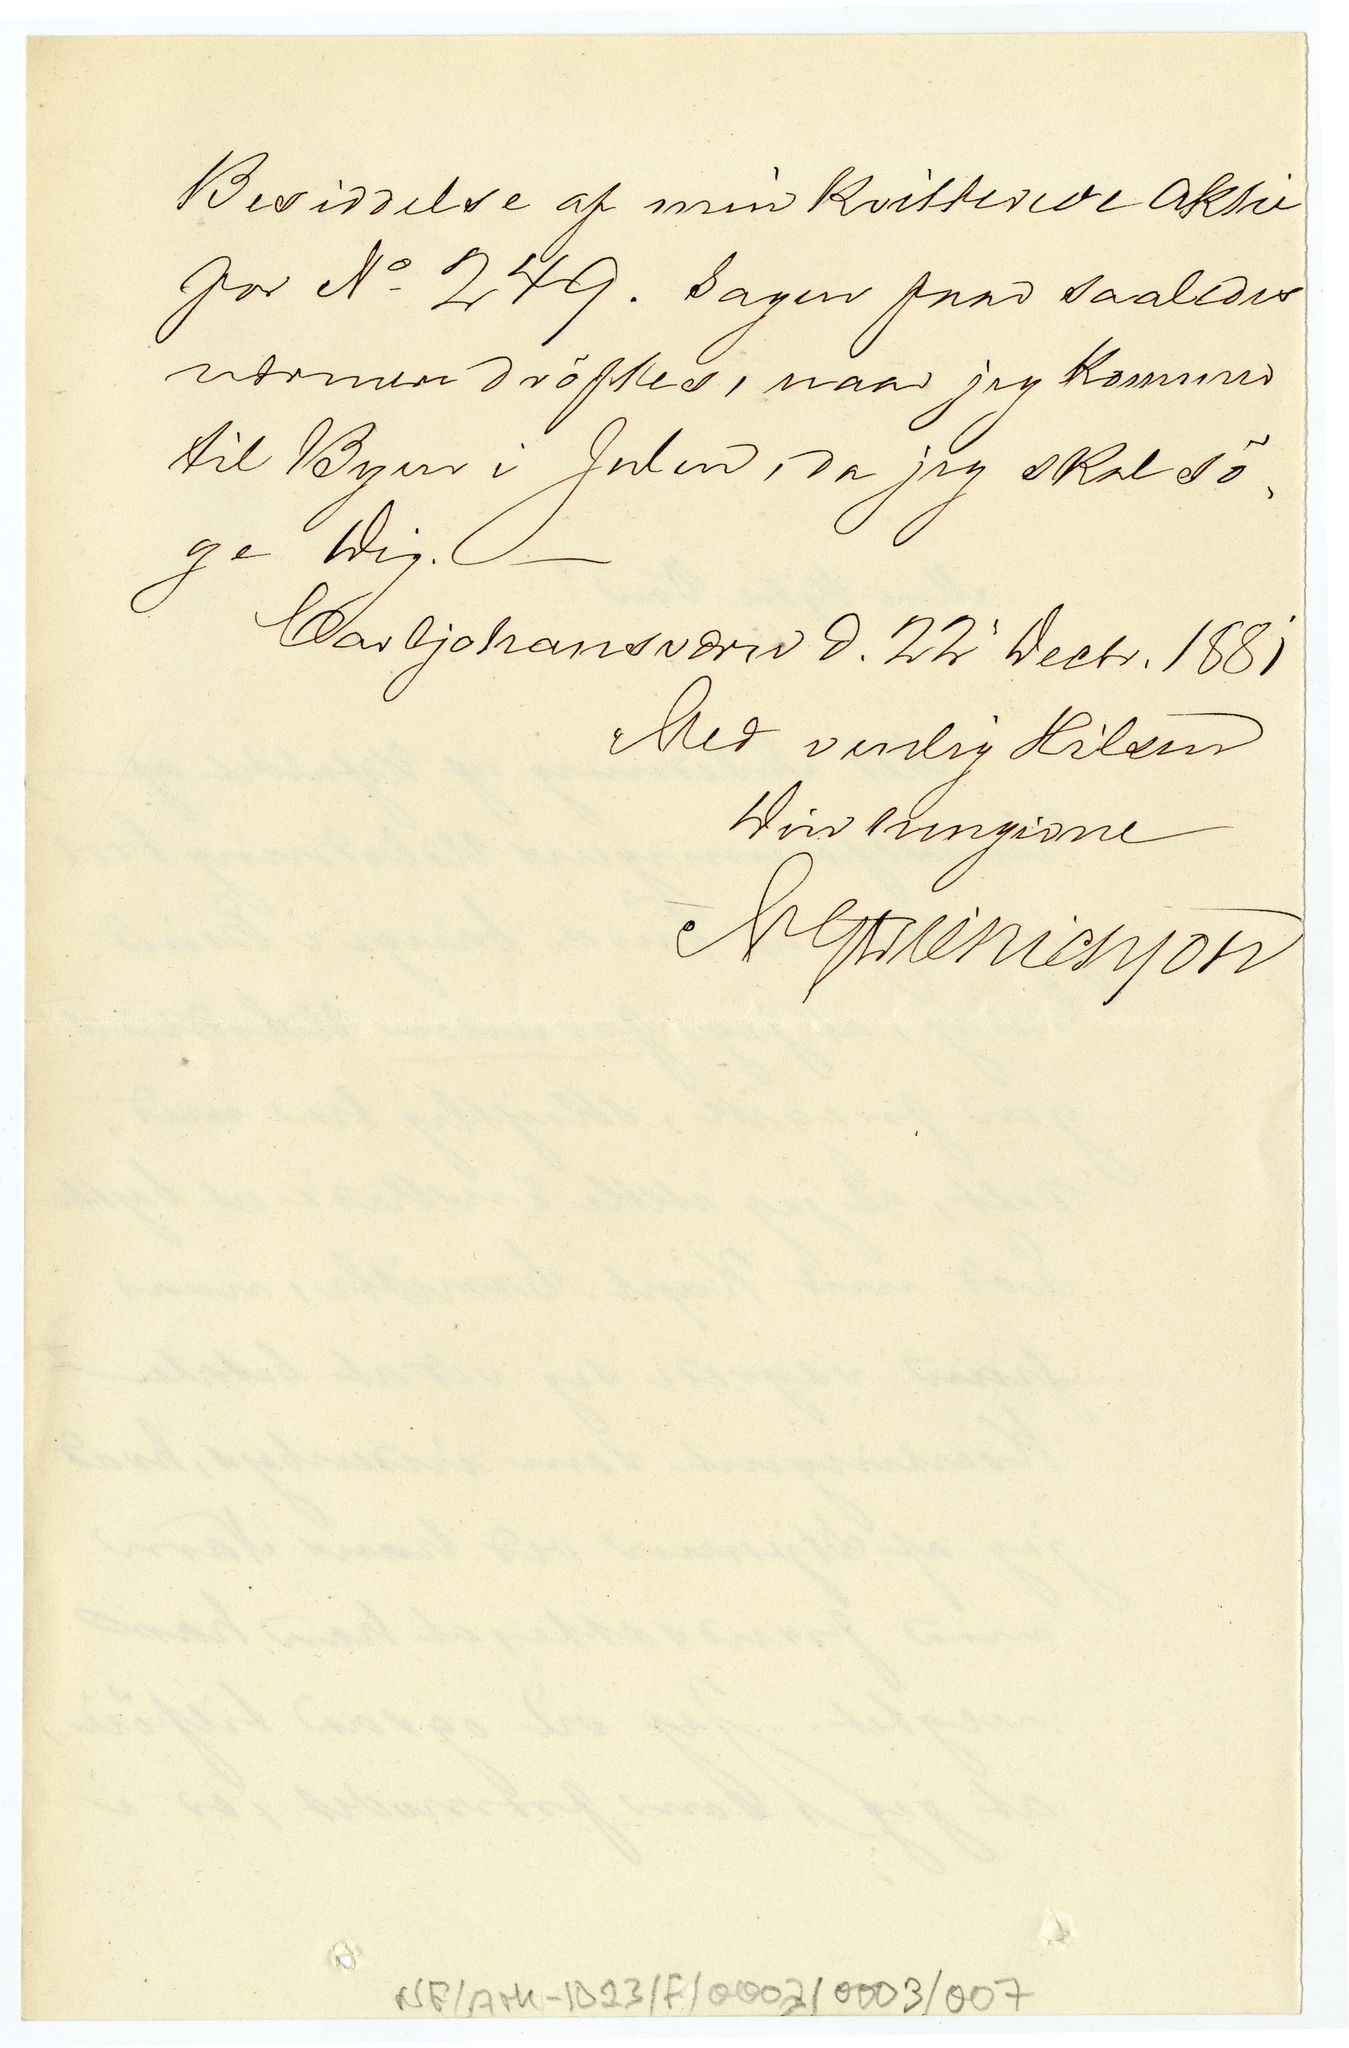 Besiddelse af min kvitterede Aktie
for No 249. Sagen faar saaledes
nærmere dröftes, naar jeg kommer
til Byen i Julen, da jeg skal sö-
ge Dig.
Carljohansværn d. 22 Decbr. 1881
Med venlig Hilsen
Din hengivne
NF/Ark-1023/F/0002/0003/007